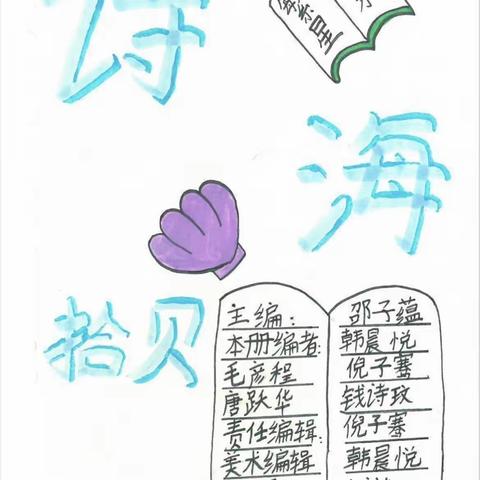 诗
海
拾贝
主编：
本册编者：
毛彦程
唐跃华
责任编辑：
美术编辑
邵子蕴
韩晨悦
倪子骞
钱诗玟
倪子骞
韩晨悦